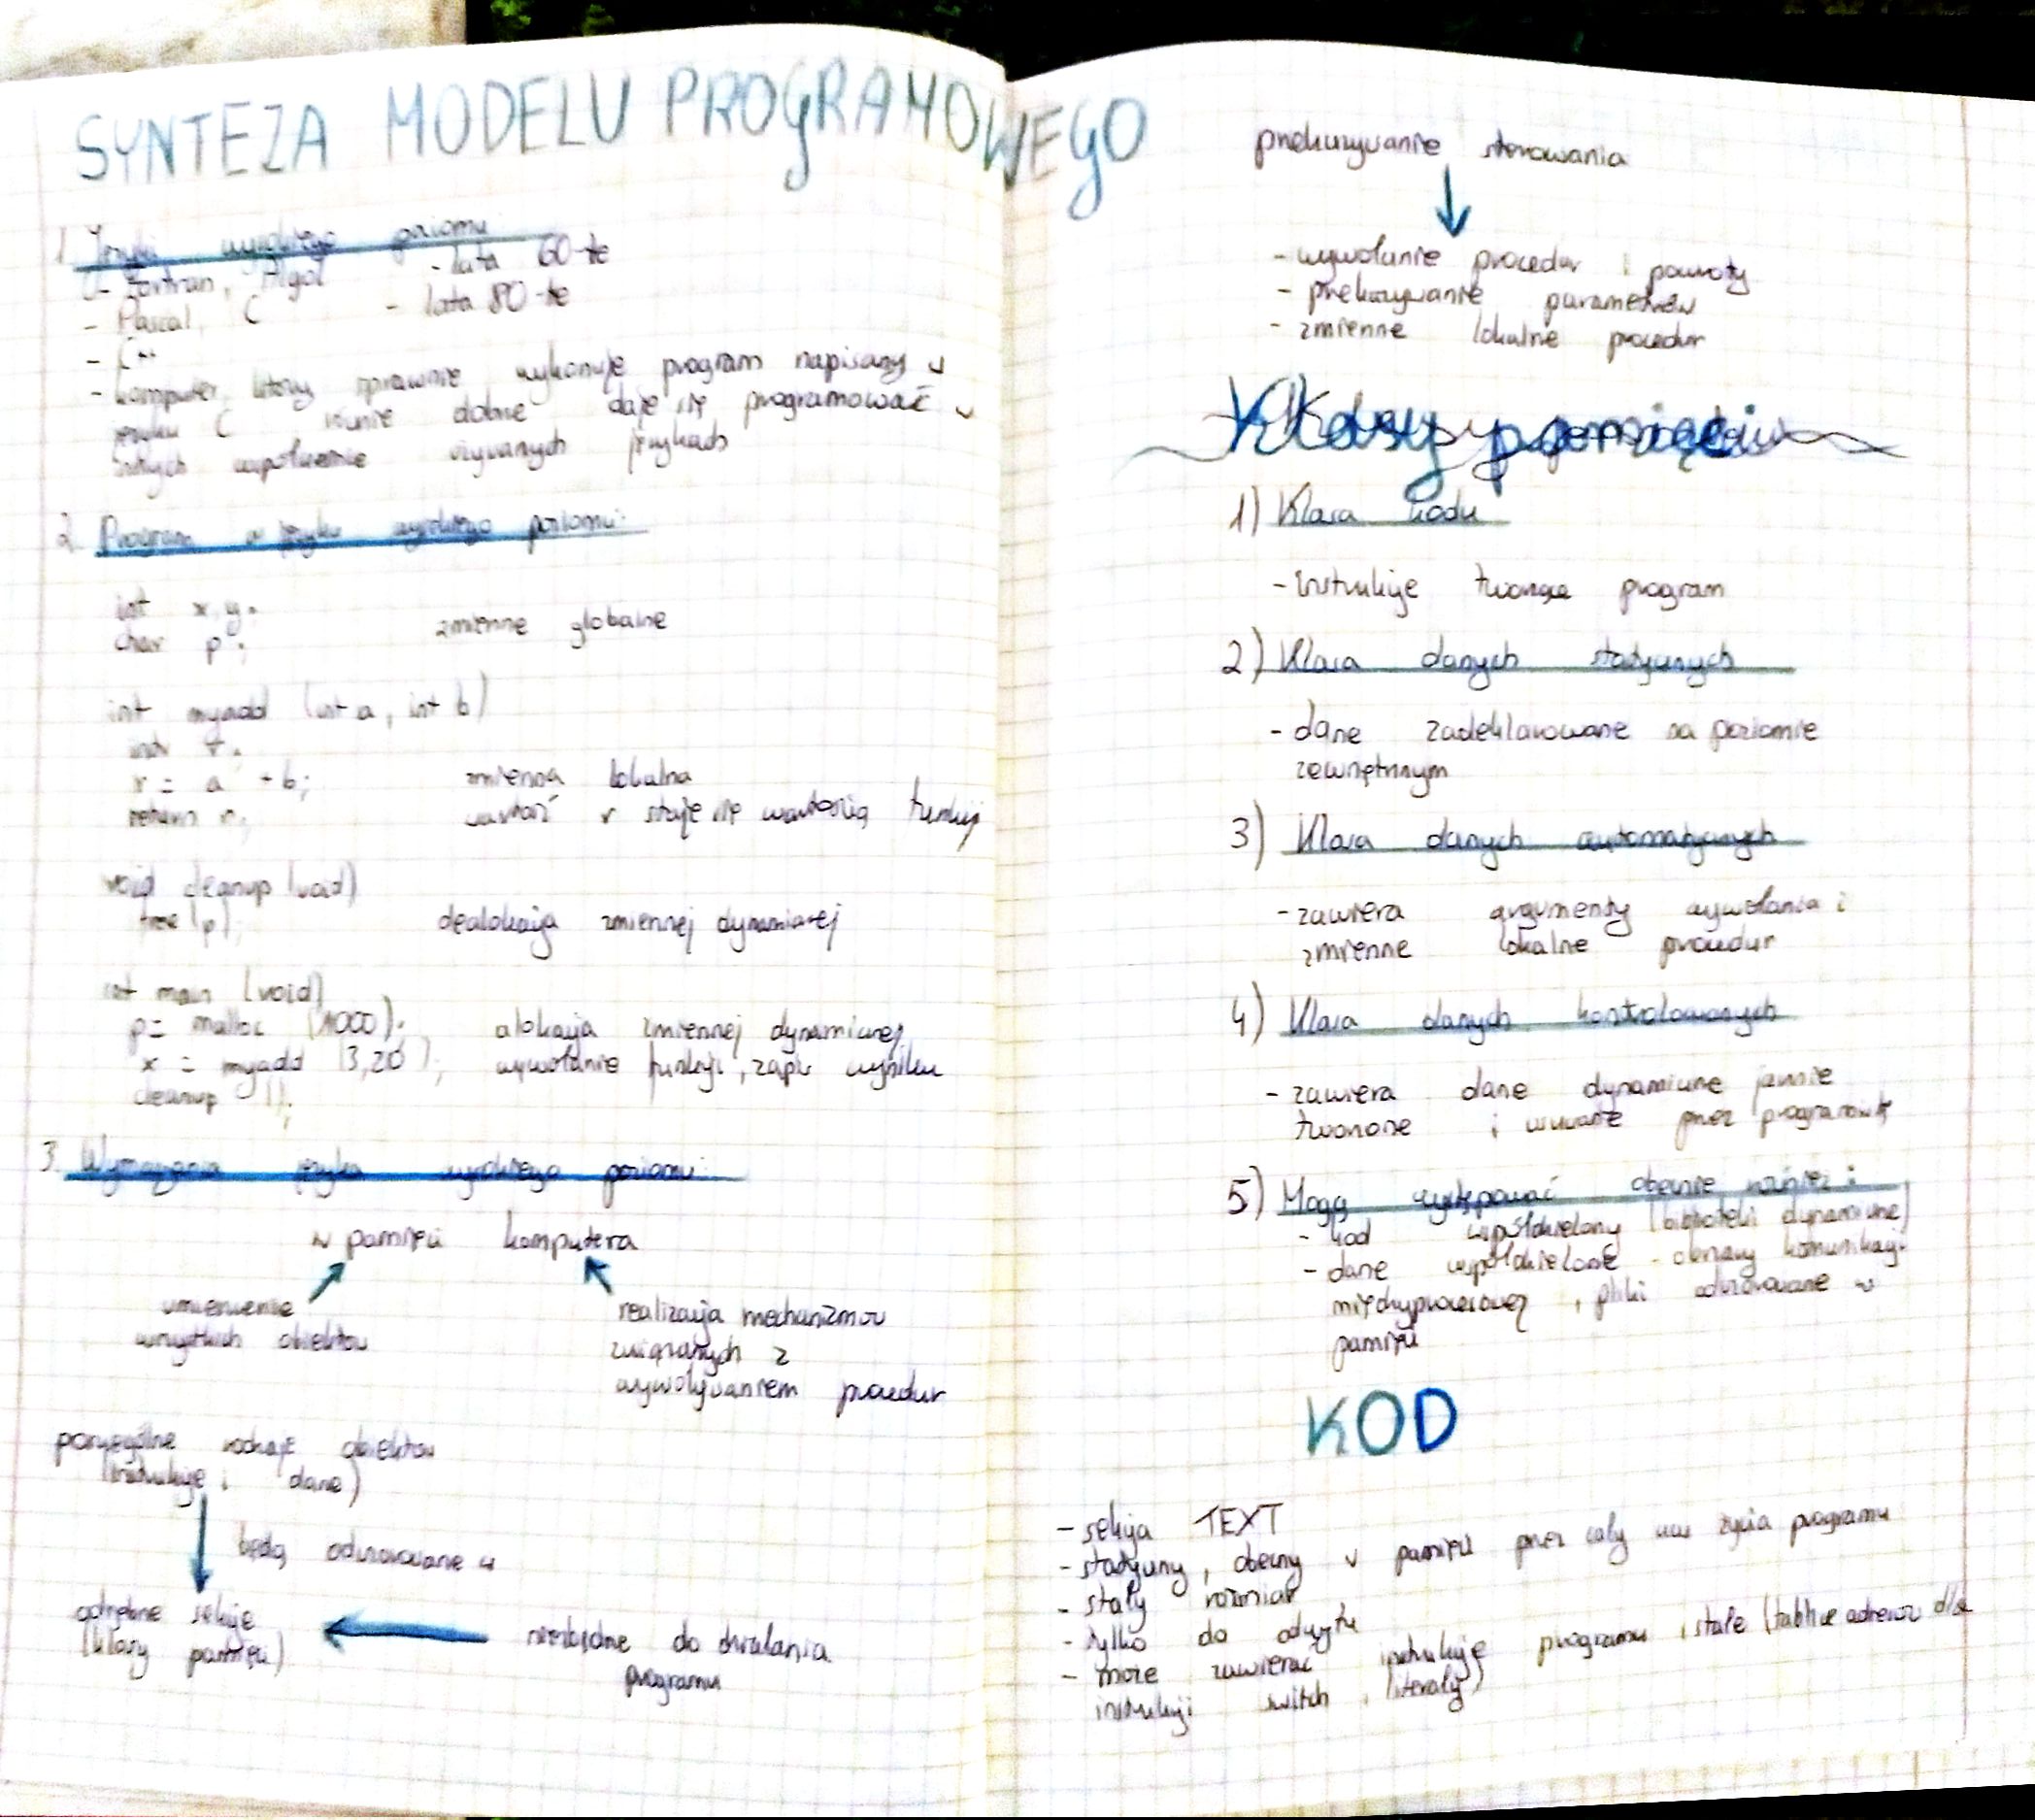 SYNTEZA MODELU PROGRAMOWEGO
1. Języki wysokiego poziomu
- Fortran, Algol - lata 60-te
- Pascal, C - lata 80-te
- C++
- komputer, który sprawnie wykonuje program napisany w
języku C równie dobrze daje się programować w
innych współcześnie używanych językach
2. Program w języku wysokiego poziomu:
int x, y;
char p; zmienne globalne
int myadd (int a, int b)
int r;
r = a + b; zmienna lokalna
return r; wartość r staje się wartością funkcji
void cleanup (void)
free (p); dealokacja zmiennej dynamicznej
int main (void)
p = malloc (1000); alokacja zmiennej dynamicznej
x = myadd (3,20); wywołanie funkcji, zapis wyniku
cleanup ();
3. Wymagania języka wysokiego poziomu:
w pamięci komputera
umieszczenie
wszystkich obiektów
realizacja mechanizmów
związanych z
wywoływaniem procedur
poszczególne rodzaje obiektów
(instrukcje i dane)
będą odwzorowane w
odrębne sekcje
(klasy pamięci)
niezbędne do działania
programu
przekazywanie sterowania
- wywołanie procedur i powroty
- przekazywanie parametrów
- zmienne lokalne procedur
Klasy pamięci
1) Klasa kodu
- instrukcje tworzące program
2) Klasa danych statycznych
- dane zadeklarowane na poziomie
zewnętrznym
3) Klasa danych automatycznych
- zawiera argumenty wywołania i
zmienne lokalne procedur
4) Klasa danych kontrolowanych
- zawiera dane dynamiczne jawnie
tworzone i usuwane przez programistę
5) Mogą występować obecnie również:
- kod współdzielony (biblioteki dynamiczne)
- dane współdzielone - obszary komunikacji
międzyprocesowej, pliki odwzorowane w
pamięci
KOD
- sekcja TEXT
- statyczny, obecny w pamięci przez cały czas życia programu
- stały rozmiar
- tylko do odczytu
- może zawierać instrukcje programu i stałe (tablice adresów dla
instrukcji switch, literały)